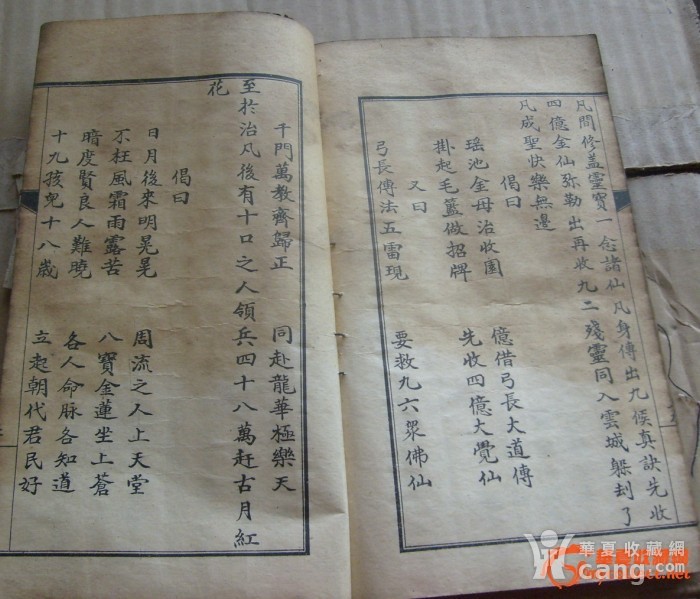 凡間修盖靈寶一念諸仙凡身傳出九候真訣先收
四億金仙弥勒出再收九二殘靈同入雲城躲刦了
凡成聖快樂無邊
偈曰
瑶池金母治收圓 億借弓長大道傳
掛起毛籃做招牌 先收四億大覺仙
又曰
弓長傳法五雷現 要救九六眾佛仙
千門萬教齊歸正 同赴龍華極樂天
至於治凡後有十口之人領兵四十八萬赶古月紅
花
偈曰
日月後來明晃晃 周流之人上天堂
不枉風霜雨露苦 八寶金蓮坐上蒼
暗度賢良人難曉 各人命脉各知道
十九孩兒十八歲 立起朝代君民好
華夏收藏網
cang.com